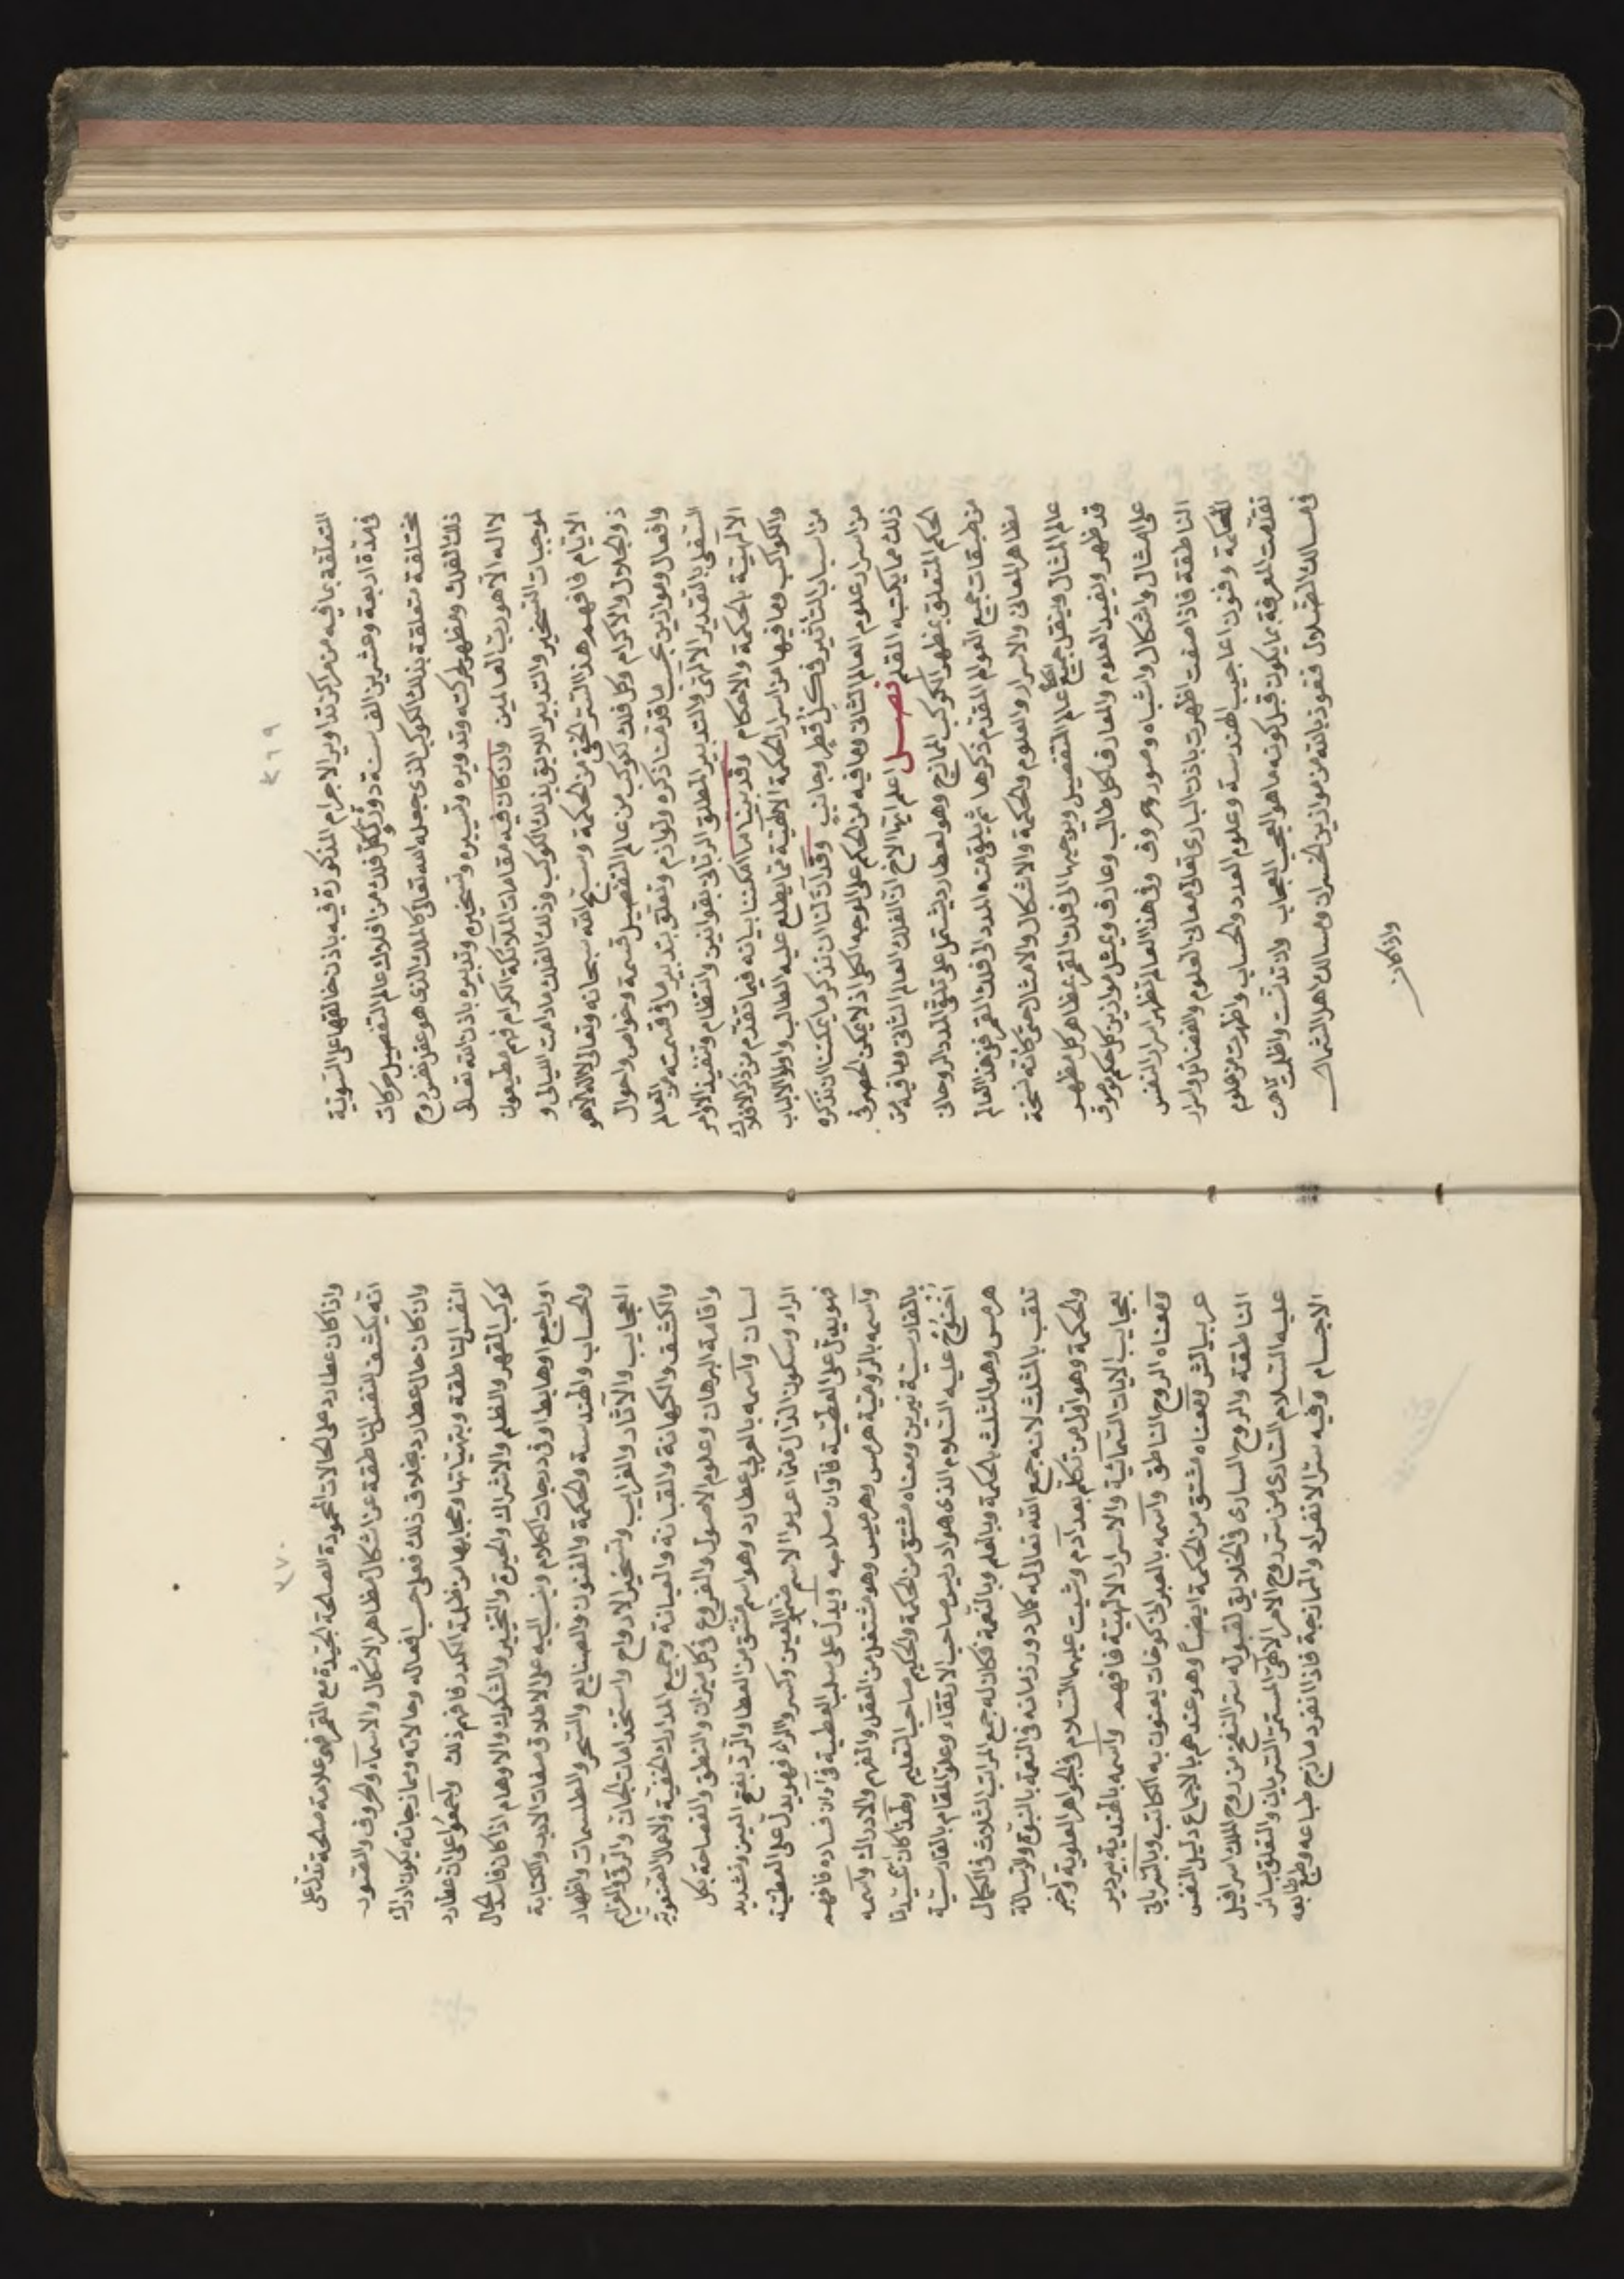 ٣٦٩
المتعلقة بما فيه من مراكز تداوير الاجرام المذكورة فيه باذن خالقها على السوية
فى مدة اربعة وعشرين الف سنة دورة لكل فلك من افلاك عالم التفصيل حركات
مختلفة متعلقة بذلك الكوكب الذى جعله الله تعالى كالملك الذى هو عقل نفس روح
ذلك الفلك ومظهر لحركته وتدويره وتسييره وتسخيره وتدبيره باذن الله تعالى
لا اله الا هو رب العالمين وان كان فيه مقامات الملائكة الكرام فهم مطيعون
لموجبات التسخير والتدبير اللايق بذلك الكوكب وذلك الفلك ما دامت الليالى و
الايام فافهم هذا السر الخفى من الحكمة وسبح الله سبحانه وتعالى لا اله الا هو
ذو الجلال والاكرام وكل فلك كوكب من عالم التفصيل قسمة وخواص واحوال
وافعال وموازين بحسب ما قدمنا ذكره ولوازم وتعلق بتدبير ما فى قسمته من العالم
السفلى بالتقدير الالهى والتدبير المطلق الربانى بقوانين وانتظام وتنفيذ الاوامر
الالهية بالحكمة والاحكام وقد بينا ما امكننا بيانه فيما تقدم من ذكر الافلاك
والكواكب وما فيها من اسرار الحكمة الالهية مما يطلع عليه الطالب واولوا الالباب
من اسباب التاثير فى كل قطر وجانب وقد آن لنا ان نذكر ما يمكننا ان نذكره
من اسرار علوم العالم الثانى وما فيه من الحكم على الوجه الكلى اذ لا يمكن الحصر فى
ذلك مما يكتبه القلم فصل اعلم ايها الاخ ان الفلك العالم الثانى وما فيه من
الحكم المتعلق بمظهر الكوكب المازج وهو لعطارد يشتمل على تلقى المدد الروحانى
من طبقات جميع العوالم المقدم ذكرها ثم يلقى منه المدد الى فلك القمر فى هذا العالم
مظاهر المعانى والاسرار والعلوم والحكمة والاشكال والامثال حتى كانه نسخة
عالم المثال وينقل جميع عالم التفصيل ويوجيها الى فلك القمر مظاهر كل مظهر
قد ظهر ويفيد العلوم والمعارف لكل طالب وعارف ويمثل موازين كل حكم موصوف
على امثال واشكال واشباه وصور وحروف وفى هذا العالم تظهر اسرار النفس
الناطقة فاذا صفت اظهرت باذن البارى تعالى معانى العلوم والفضائل واسرار
الحكمة وفنون اعاجيب الهندسة وعلوم العدد والحساب واظهرت من علوم
تقدمت المعرفة بما يكون قبل كونه ما هو العجب العجاب ولا تدنست واظلمت تاهت
فى مسالك الضلال فنعوذ بالله من موازين الخسران ومسالك اهل الشمال
واذا كان
٣٧٠
واذا كان عطارد على الحالات المحمودة الصالحة الجيدة مع القمر فهو علامة صالحة تدل على
انه يكشف للنفس الناطقة عن اشكال مظاهر الاشكال والاسماء والحروف والصور
وان كان حال عطارد بخلاف ذلك فعلى حسب افعاله وحالاته وممازجاته يكون ادراك
النفس الناطقة وبتهيئتها وحجابها من ظلمة الكدر فافهم ذلك واجمعوا على ان عطارد
كوكب القهر والظلم والاشراك والحيرة والتخيير والشكوك والاوهام اذا كان فاسد الحال
او راجع او هابط او فى درجات الكلام وينسب اليه على الاطلاق صفات الادب والكتابة
والحساب والهندسة والحكمة والفنون والصنايع والسحر والطلسمات واظهار
العجايب والآثار والغرايب وتسخير الارواح واستخدامات الجان والرقى والعزايم
والكشف والكهانة والقيانة والعيافة وجميع المدارك الخفية والاعمال التصويرية
واقامة البرهان وعلوم الاصول والفروع فى كل ميزان والنطق والفصاحة بكل
لسان واسمه بالعربى عطارد وهو اسم مشتق من العطاء والرد بفتح العين وتشديد
الراء وسكون الدال فلما اعربوا الاسم ضموا العين وكسروا الراء فهو يدل على العطية
فهو يدل على العطية فآوان صلاحه ويدل على سلب العطية فى اوان فساده فافهم
واسمه بالرومية هرمس وهرميس وهو مشتغل من العقل والفهم والادراك واسمه
بالفارسية تيرين ومعناه مشتق من الحكمة والحكيم صاحب التعليم ولهذا كان سيدنا
اخنوخ عليه السلام الذى هو ادريس صاحب الارتقاء وعلو المقام بالفارسية
هرمس وهو المثلث بالحكمة وبالعلم وبالنعمة فكان له جميع المراتب الثلاث فى الكمال
تلقب بالمثلث لانه جمع الله تعالى له كمال دور زمانه فى النعمة بالنبوة والرسالة
والحكمة وهو اول من تكلم بعد آدم وشيث عليهما السلام فى الجواهر العلوية واخبر
بعجايب الايات السمائية والاسرار الالهية فافهم واسمه بالهندية بير دير
ومعناه الروح الناطق واسمه بالعبرانى كوخات يعنون به الكاتب وبالسريانى
عربيالش ومعناه مشتق من الحكمة ايضا وهو عندهم بالاجماع دليل النفس
الناطقة والروح السارى فى الخلايق لقبوله سر النفخ من روح الملك اسرافيل
عليه السلام السارى من سر روح الامر الالهى المستمر السريان والتعلق بسائر
الاجسام وفيه سر الانفراد والممازجة فاذا انفرد مازج طباعه وطبايعه